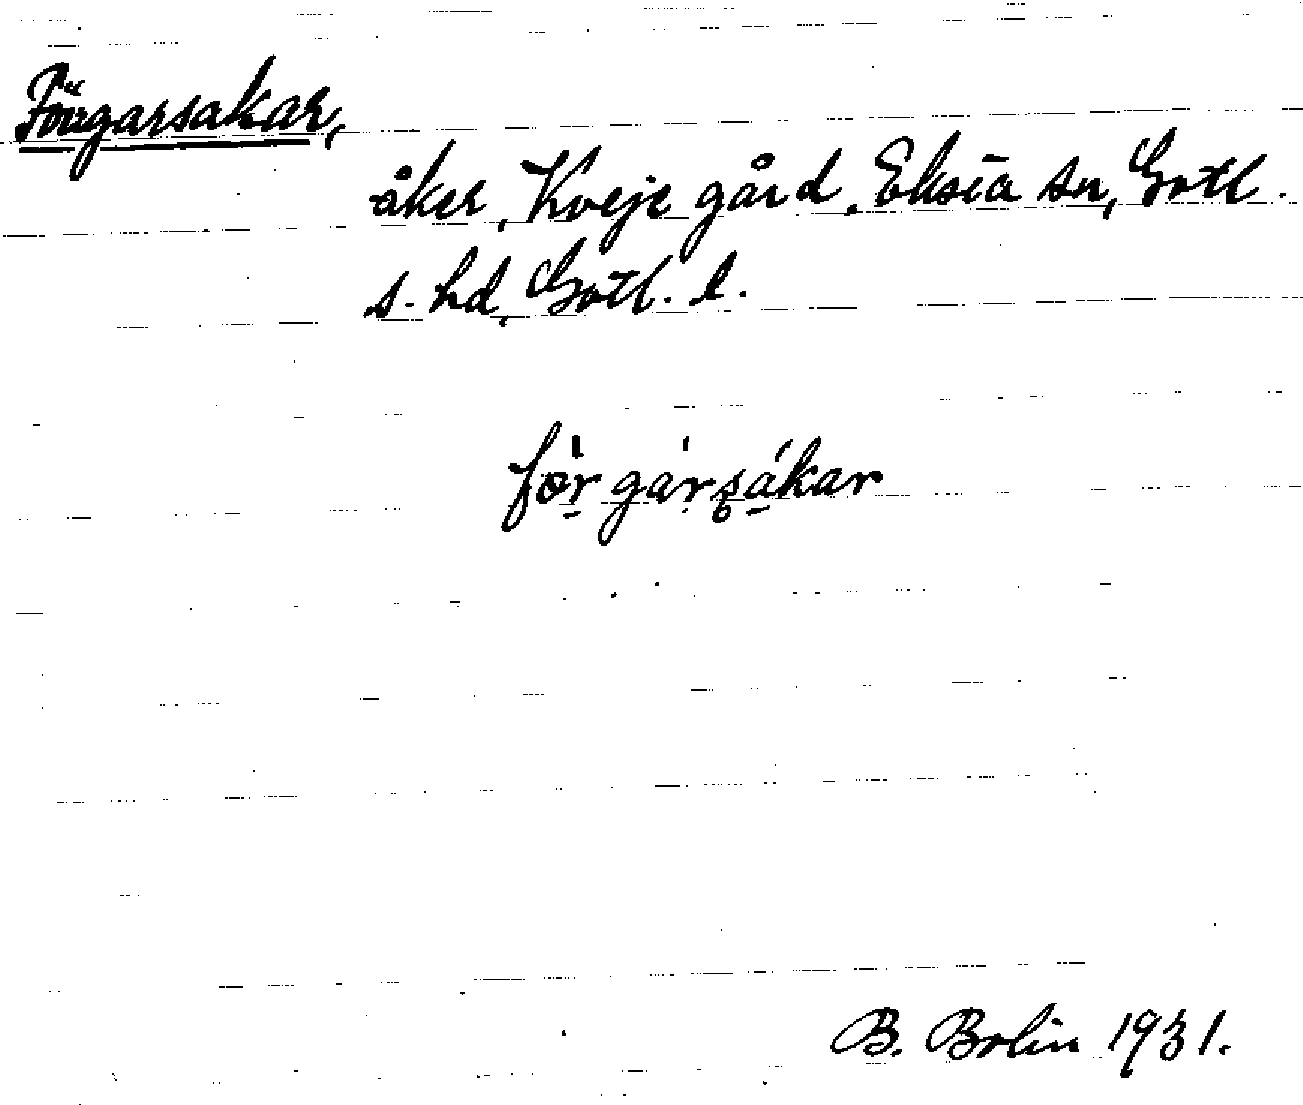 Förgarsakar,
åker, Kveje gård, Eksta sn, Gotl.
s. hd, Gotl. l.
förgarsakar
B. Bolin 1931.